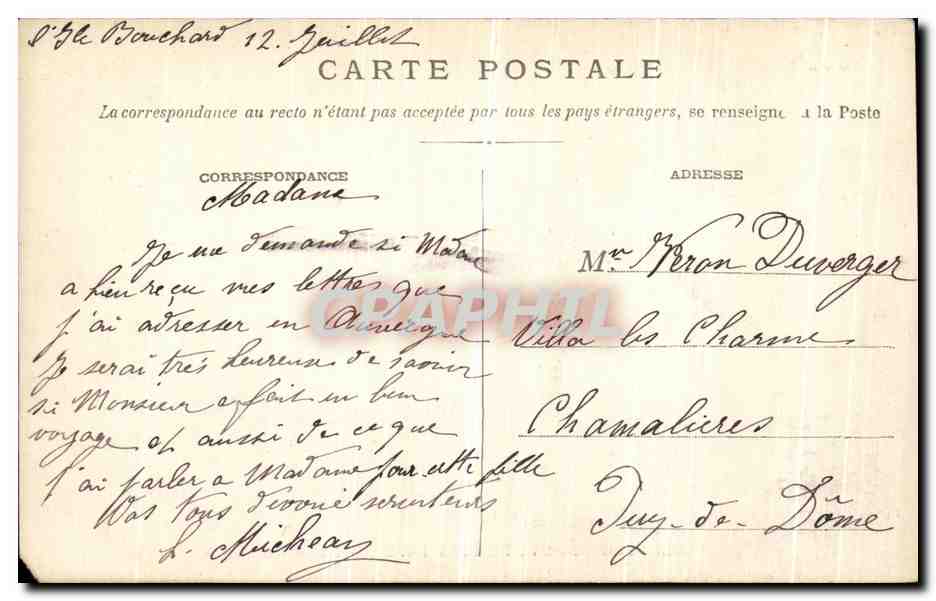 l'Ile Bouchard 12. Juillet
CARTE POSTALE
La correspondance au recto n'étant pas acceptée par tous les pays étrangers, se renseigne à la Poste
CORRESPONDANCE
Madame
Je me demande si Madame
a bien reçu mes lettres que
j'ai adresser en Auvergne
Je serai très heureuse de savoir
si Monsieur a fait un bon
voyage et aussi de ce que
j'ai parler a Madame pour cette fille
Vos tous dévoué serviteurs
L. Micheau
ADRESSE
Mr Véron Duverger
Villa les Charmes
Chamalieres
Puy-de-Dôme
CPAPHIL